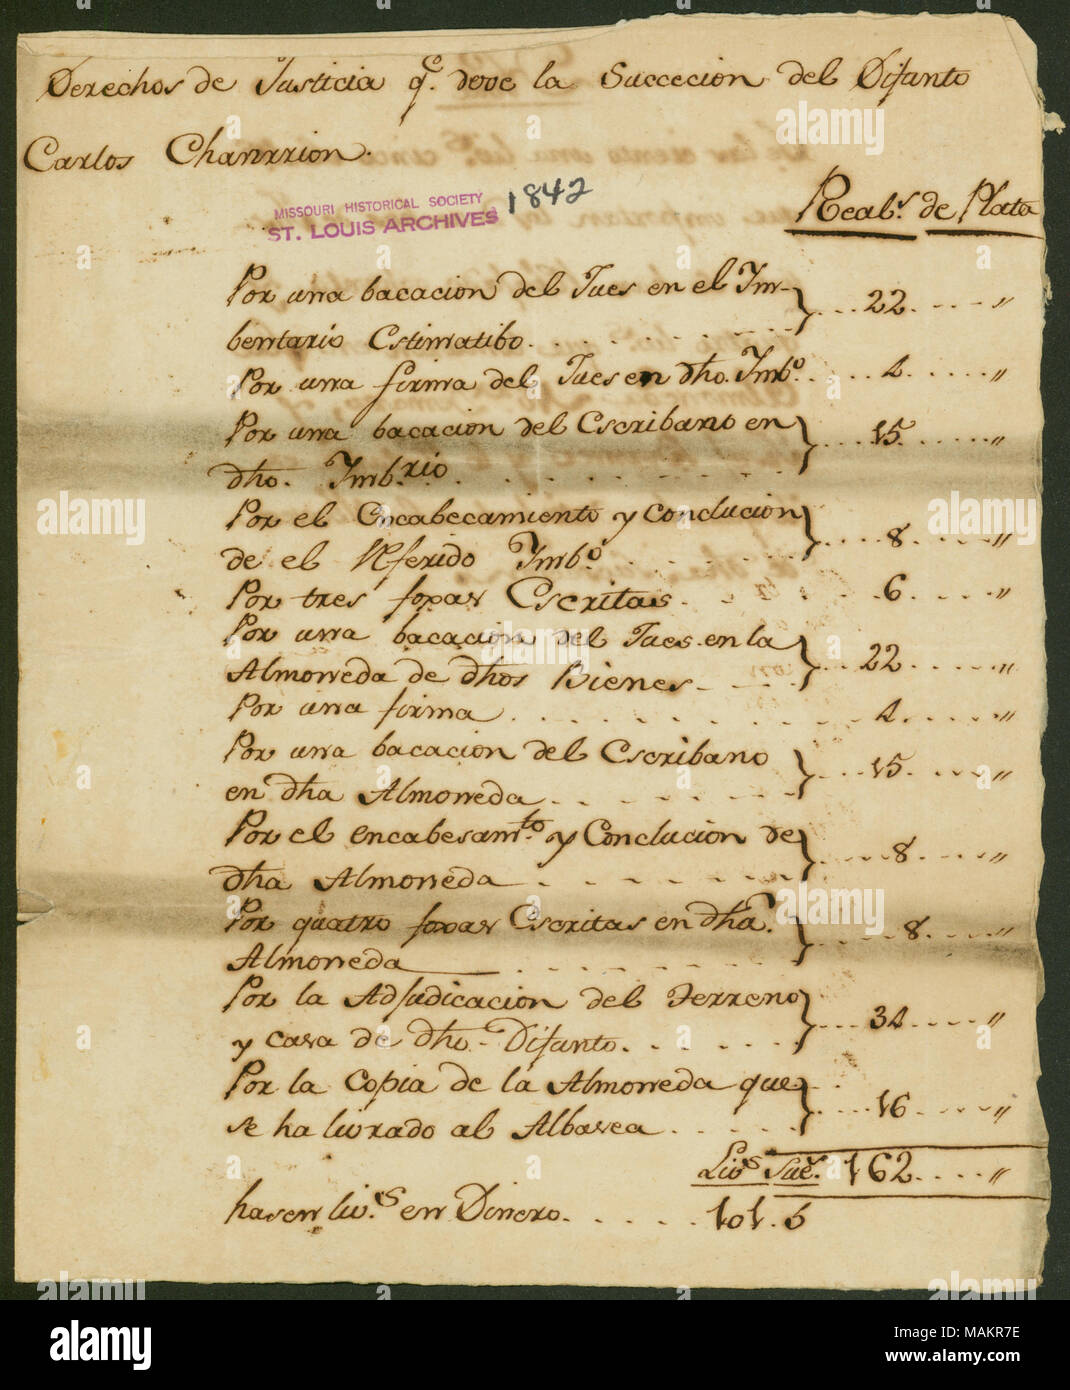 Derechos de Justicia q.e deve la Succecion del Difunto
Carlos Chanrrion.
MISSOURI HISTORICAL SOCIETY
ST. LOUIS ARCHIVES
1842
Reals. de Plata
Por una bacacion del Jues en el Im-
bentario Estimatibo. } 22 "
Por una firma del Jues en dho. Imbo. 4 "
Por una bacacion del Escribano en
dho. Imb.rio } 15 "
Por el Encabecamiento y Conclucion
de el Referido Imbo. } 8 "
Por tres foxas Escritas 6 "
Por una bacacion del Jues en la
Almoneda de dhos Bienes } 22 "
Por una firma 4 "
Por una bacacion del Escribano
en dha Almoneda } 15 "
Por el encabesam.to y Conclucion de
dha Almoneda } 8 "
Por quatro foxas Escritas en dha.
Almoneda } 8 "
Por la Adjudicacion del Terreno
y casa de dho. Difunto. } 34 "
Por la Copia de la Almoneda que
se ha livrado al Albasea } 16 "
Liv.s 162 "
hasen liv.s en Dinero. 101. 5
alamy
Image ID: MAKR7E
www.alamy.com